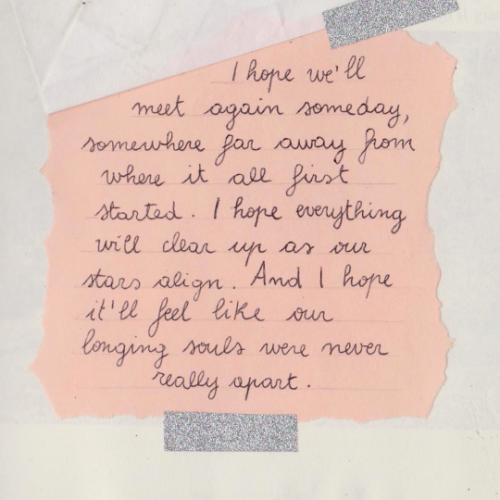 I hope we'll
meet again someday,
somewhere far away from
where it all first
started. I hope everything
will clear up as our
stars align. And I hope
it'll feel like our
longing souls were never
really apart.